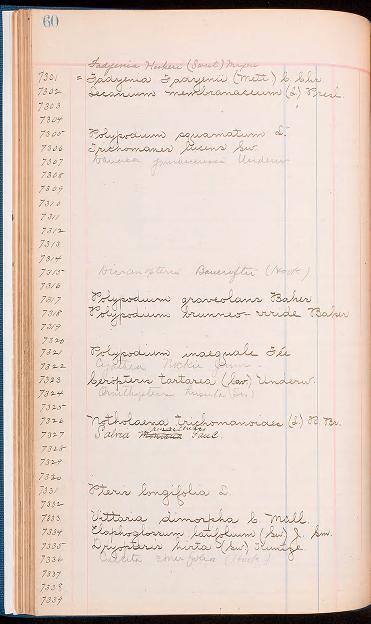 60
Fadyenia Hookeri (Sweet) Maxon
7301 = Fadyenia Fadyenii (Mett) C. Chr.
7302 Tecanium membranaceum (L) Presl.
7303
7304
7305 Polypodium squamatum L.
7306 Trichomanes lucens Sw.
7307 Danaea jamaicensis Underw
7308
7309
7310
7311
7312
7313
7314
7315 Dicranopteris Bancroftii (Hook)
7316
7317 Polypodium graveolans Baker
7318 Polypodium brunneo-viride Baker
7319
7320
7321 Polypodium inaequale Fée
7322 Cyathea
7323 Ceropteris tartarea (Cav) Underw.
7324 Ornithopteris hirsuta (L.)
7325
7326 Notholaena trichomanoides (L) R. Br.
7327 Salvia
7328
7329
7330
7331 Pteris longifolia L.
7332
7333 Vittaria dimorpha C. Müll.
7334 Elaphoglossum latifolium (Sw) J. Sm.
7335 Dryopteris hirta (Sw) Kuntze
7336 Culcita coniifolia (Hook.)
7337
7338
7339